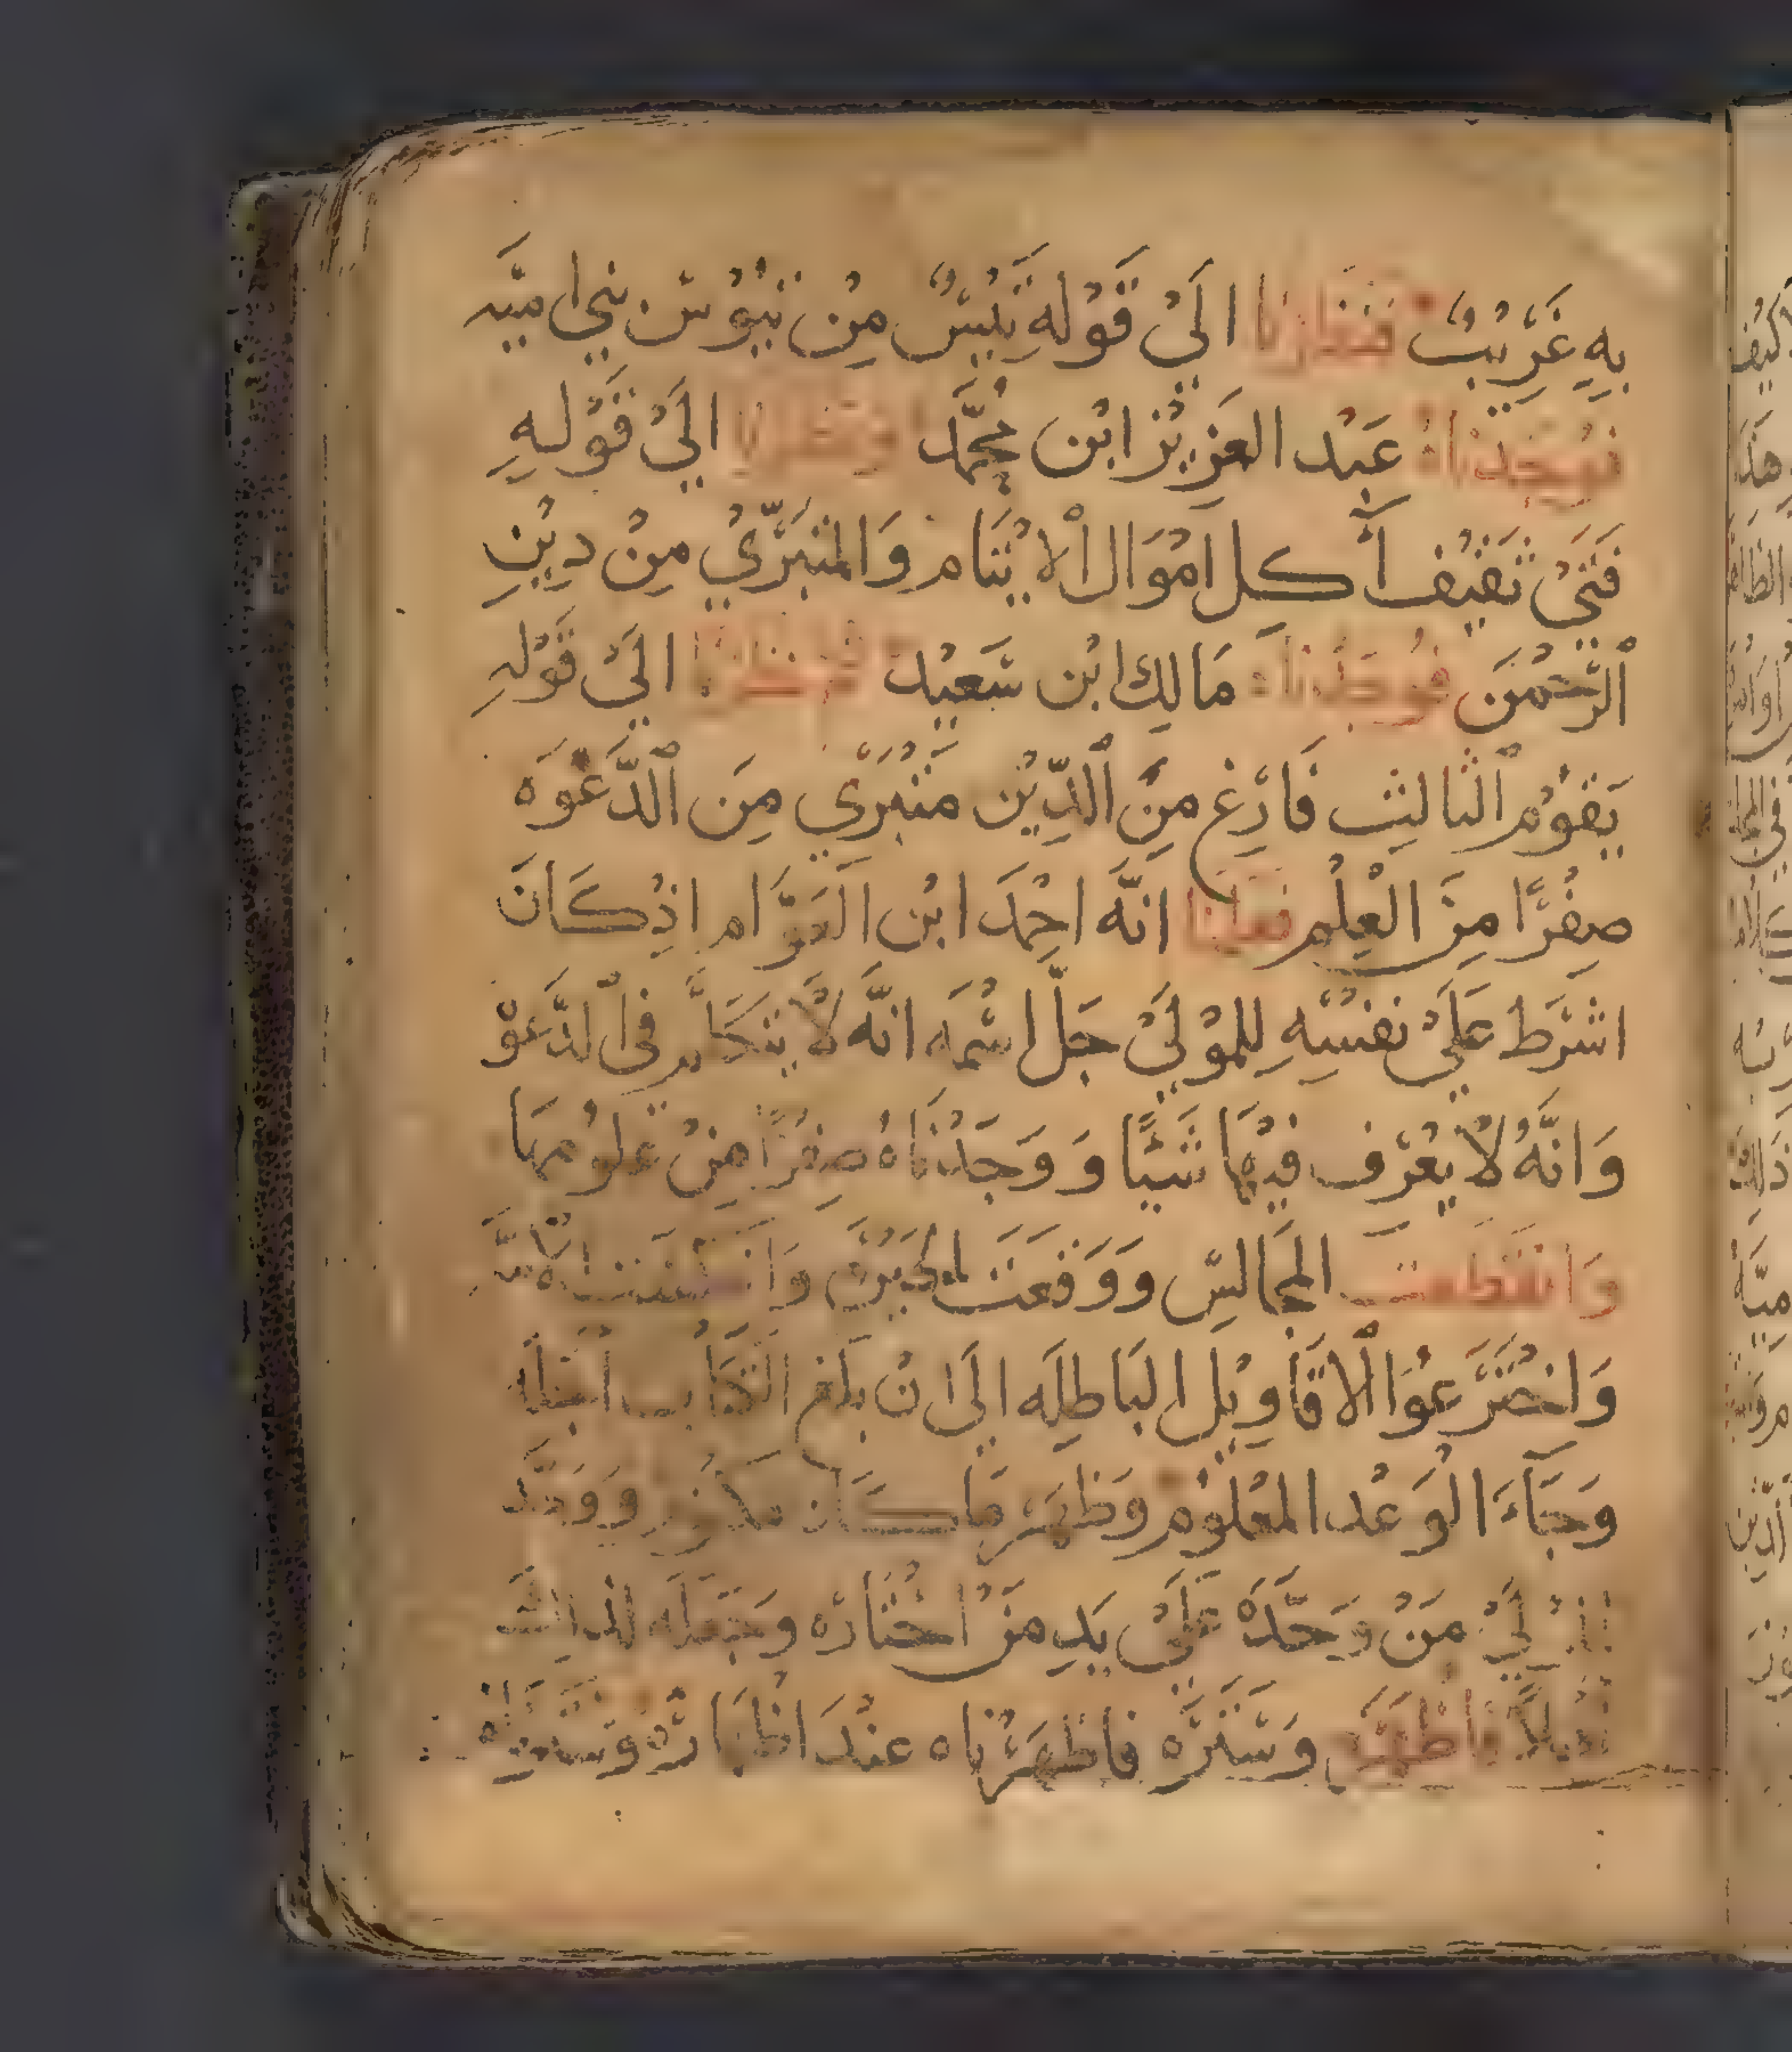 بِهِ غَرِيْبٌ فنظرنا الَيْ قَوْلهِ تَيْسٌ مِنْ تيُوْس بني اميّه
فوَجَدْناهُ عَبْد العَزِيْز ابْن محمَّد ونظرنا الَيْ قَوْلهِ
فَتَيْ ثَقيْف أَكل امْوَال ٱلايْتَام وَالمتبَرّيْ مِنْ دِيْنِ
ٱلرَّحْمن فوجَدْناهُ مَالِك ابْن سَعيْد ثم نظرنا الَيْ قَوْلهِ
يَقوْم ٱلثالِث فَارغ مِنَ ٱلدِّيْن متْبَرّي مِنَ ٱلدَّعْوَه
صِفْرًا مِنَ العِلْم فعلمنا انَّه احْمَد ابْن العَوَّام اذْ كَانَ
اشرَط عَلَيْ نفسْهِ لِلموْلَيْ جَلّ اسْمَه انَّه لَا يتكَلَّم في ٱلدَّعْو
وَانَّهُ لَا يعْرَف فيْهَا شَيًا وَ وَجَدْنَاهُ صِفْرًا مِنْ علوْمهَا
وَانقَطعت المجَالسْ وَوَقعَت الحَيْرَه وَا
وَاخْتَرَعُوا ٱلاقَاوِيْل البَاطِلَه الَي انْ بلغ الكتَاب
وَجَآءَ الوَعْد المعْلوْم وَظهَر مَا كَان مكتوم وَوَ
مَنْ وَحَّدَهُ عَلَيْ يَدِ مَنْ اخْتَارَه وَجَعَلَه لذلك
فاظهَره وَسَتَرَه فاظهَرْنَاه عنْدَ اظهَارهْ وَسَتَرْنَاه